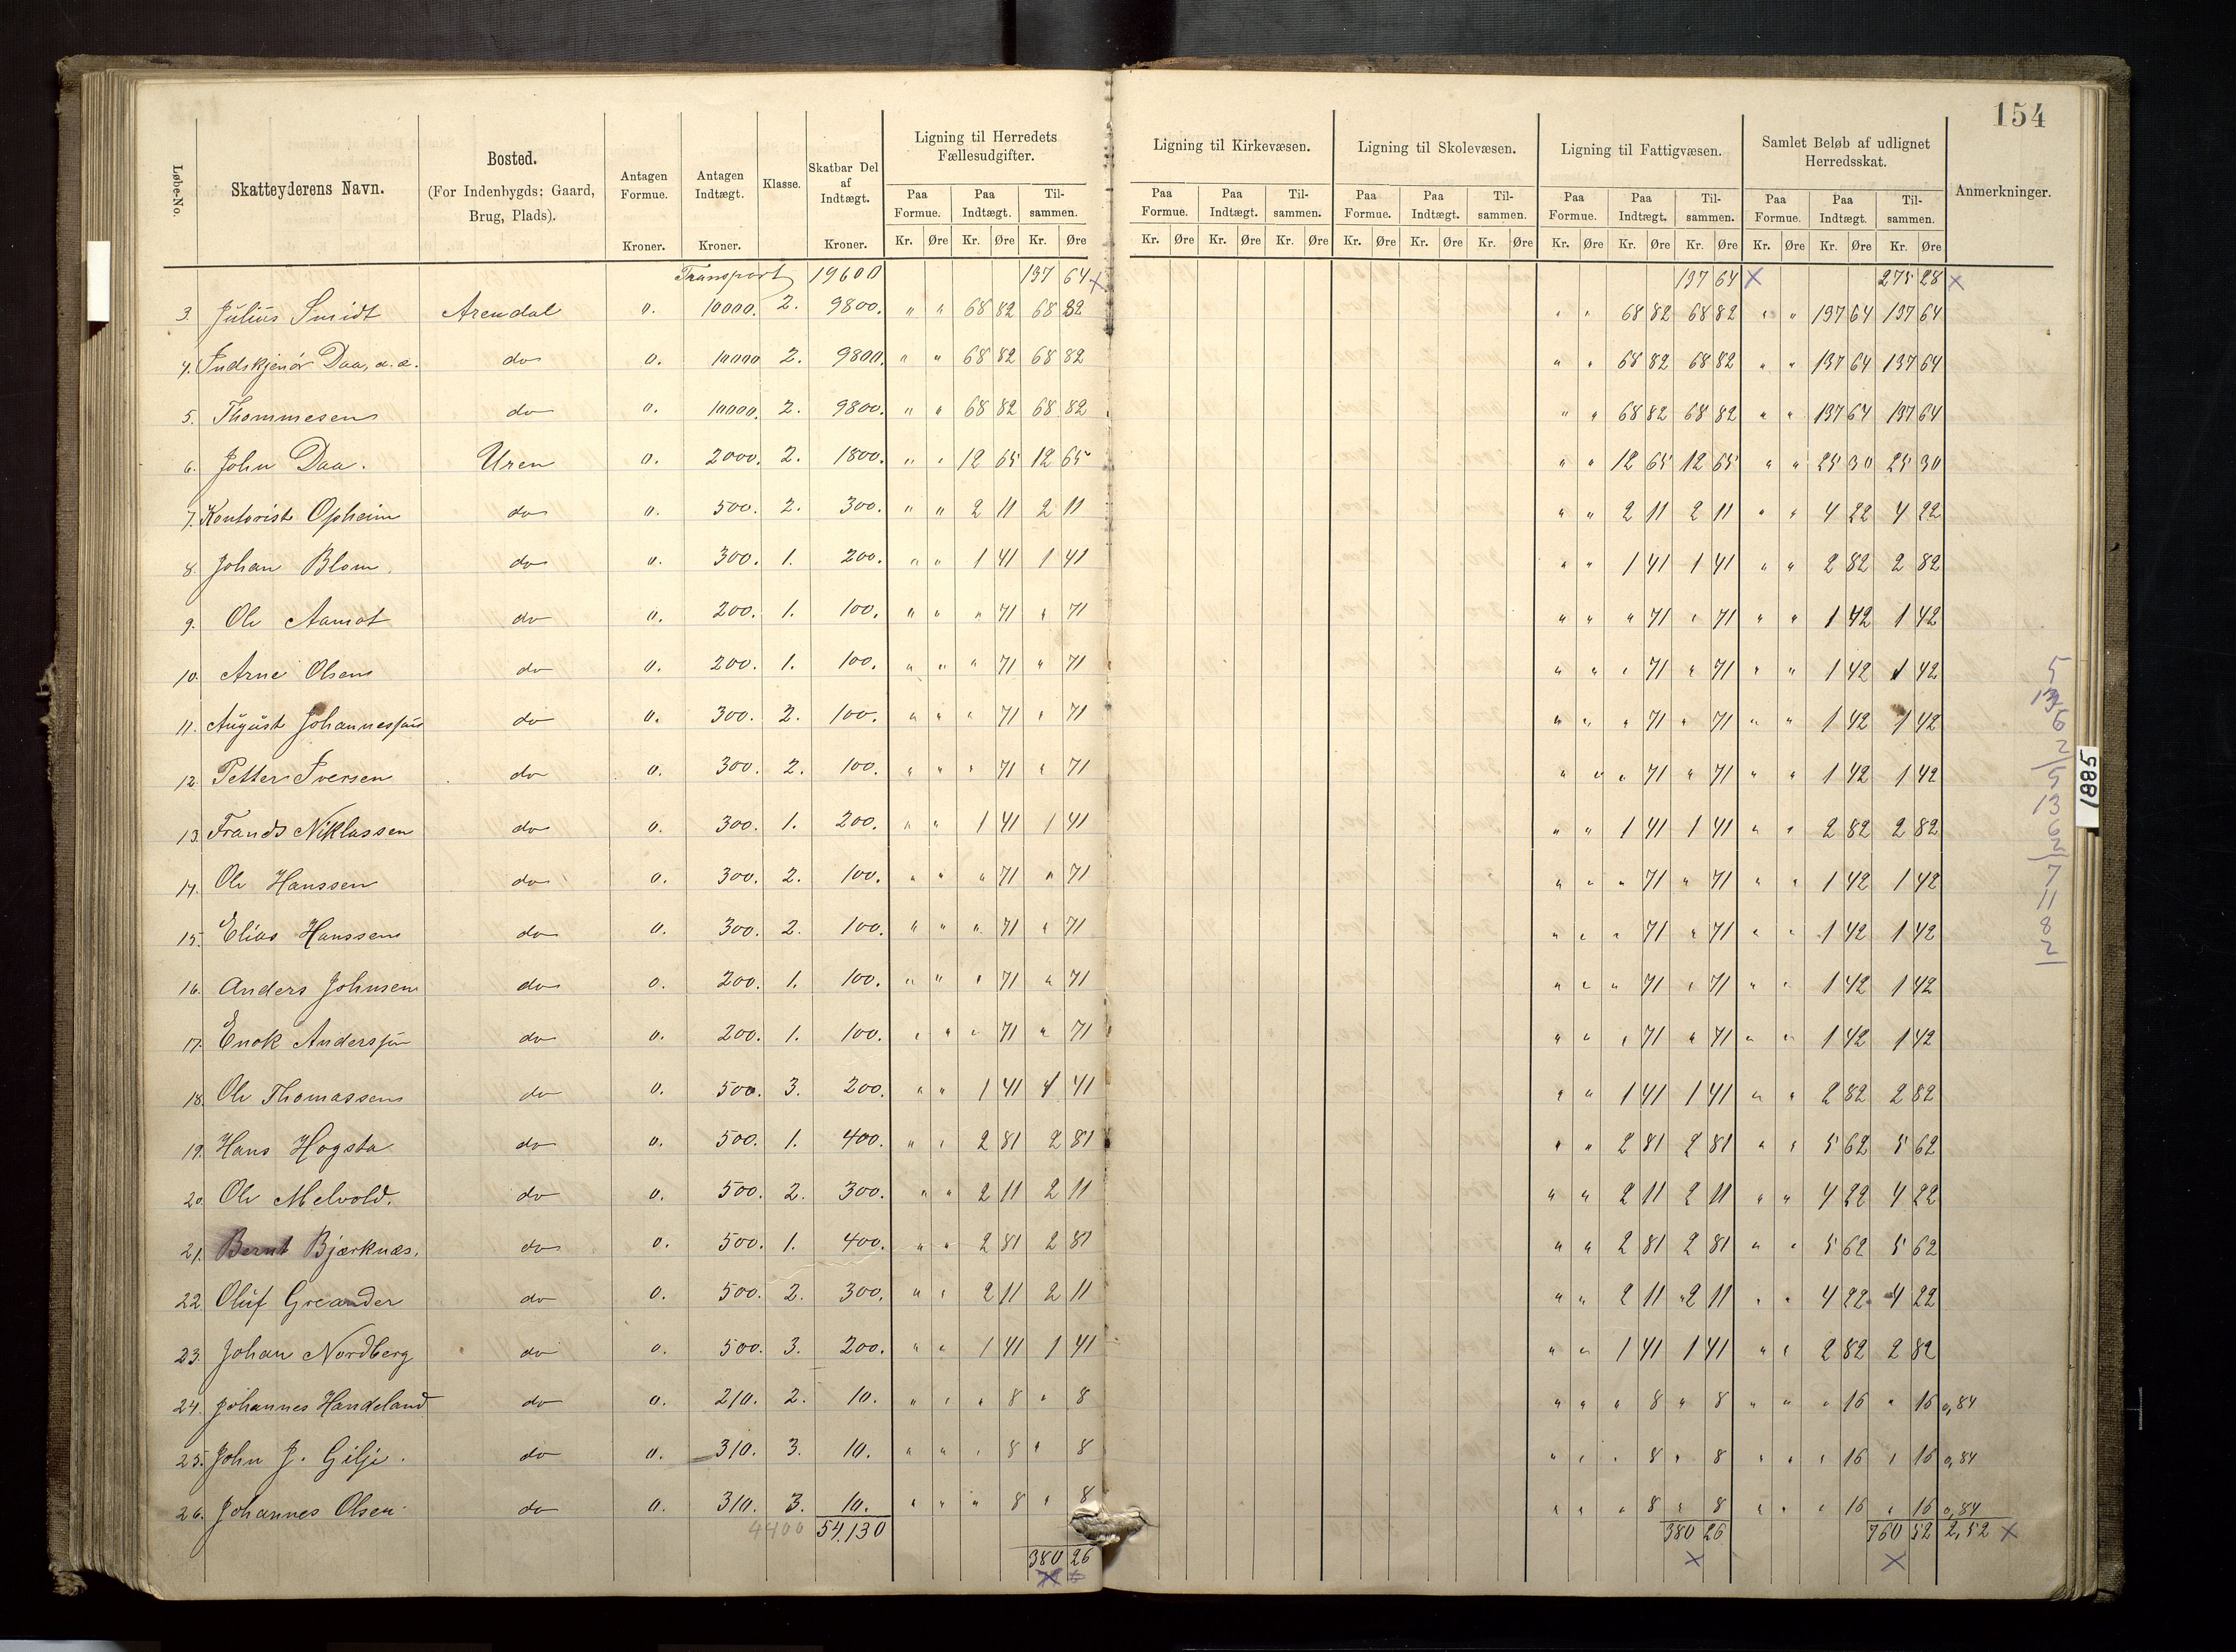 154
Løbe-No. Skatteyderens Navn. Bosted. (For Indenbygds: Gaard, Brug, Plads). Antagen Formue. Antagen Indtægt. Klasse. Skatbar Del af Indtægt. Ligning til Herredets Fællesudgifter. Ligning til Kirkevæsen. Ligning til Skolevæsen. Ligning til Fattigvæsen. Samlet Beløb af udlignet Herredsskat. Anmerkninger.
Paa Formue. Paa Indtægt. Til-sammen. Paa Formue. Paa Indtægt. Til-sammen. Paa Formue. Paa Indtægt. Til-sammen. Paa Formue. Paa Indtægt. Til-sammen. Paa Formue. Paa Indtægt. Til-sammen.
Kroner. Kroner. Kroner. Kr. Øre Kr. Øre Kr. Øre Kr. Øre Kr. Øre Kr. Øre Kr. Øre Kr. Øre Kr. Øre Kr. Øre Kr. Øre Kr. Øre Kr. Øre Kr. Øre Kr. Øre
Transport 19600 137 64 x 137 64 x 275 28 x
3. Julius Smidt Arendal 0. 10000. 2. 9800. " " 68 82 68 82 " " 68 82 68 82 " " 137 64 137 64
4. Indskjenör Daa, a.a. do 0. 10000 2. 9800. " " 68 82 68 82 " " 68 82 68 82 " " 137 64 137 64
5. Thommesen do 0. 10000. 2. 9800. " " 68 82 68 82 " " 68 82 68 82 " " 137 64 137 64
6. John Daa. Uren 0. 2000. 2. 1800. " " 12 65 12 65 " " 12 65 12 65 " " 25 30 25 30
7. Kontorist Opheim do 0. 500. 2. 300. " " 2 11 2 11 " " 2 11 2 11 " " 4 22 4 22
8. Johan Blom do 0. 300. 1. 200. " " 1 41 1 41 " " 1 41 1 41 " " 2 82 2 82
9. Ole Aamot do 0. 200. 1. 100. " " " 71 " 71 " " " 71 " 71 " " 1 42 1 42
10. Arne Olsen do 0. 200. 1. 100. " " " 71 " 71 " " " 71 " 71 " " 1 42 1 42
11. August Johannessen do 0. 300. 2. 100. " " " 71 " 71 " " " 71 " 71 " " 1 42 1 42
12. Petter Iversen do 0. 300. 2. 100. " " " 71 " 71 " " " 71 " 71 " " 1 42 1 42
13. Frands Niklassen do 0. 300. 1. 200. " " 1 41 1 41 " " 1 41 1 41 " " 2 82 2 82
14. Ole Hanssen do 0. 300. 2. 100. " " " 71 " 71 " " " 71 " 71 " " 1 42 1 42
15. Elias Hanssen do 0. 300. 2. 100. " " " 71 " 71 " " " 71 " 71 " " 1 42 1 42
16. Anders Johnsen do 0. 200. 1. 100. " " " 71 " 71 " " " 71 " 71 " " 1 42 1 42
17. Enok Anderssen do 0. 200. 1. 100. " " " 71 " 71 " " " 71 " 71 " " 1 42 1 42
18. Ole Thomassen do 0. 500. 3. 200. " " 1 41 1 41 " " 1 41 1 41 " " 2 82 2 82
19. Hans Hogsta do 0. 500. 1. 400. " " 2 81 2 81 " " 2 81 2 81 " " 5 62 5 62
20. Ole Melvold. do 0. 500. 2. 300. " " 2 11 2 11 " " 2 11 2 11 " " 4 22 4 22
21. Bernt Bjærknæs. do 0. 500. 1. 400. " " 2 81 2 81 " " 2 81 2 81 " " 5 62 5 62
22. Oluf Greander do 0. 500. 2. 300. " " 2 11 2 11 " " 2 11 2 11 " " 4 22 4 22
23. Johan Nordberg do 0. 500. 3. 200. " " 1 41 1 41 " " 1 41 1 41 " " 2 82 2 82
24. Johannes Handeland do 0. 210. 2. 10. " " " 8 " 8 " " " 8 " 8 " " " 16 " 16 0,84
25. John J. Gilje. do 0. 310. 3. 10. " " " 8 " 8 " " " 8 " 8 " " " 16 " 16 0,84
26. Johannes Olsen do 0. 310. 3. 10. " " " 8 " 8 " " " 8 " 8 " " " 16 " 16 0,84
4400 54,130 380 26 760 52 2,52 x
380 26 x x
1885